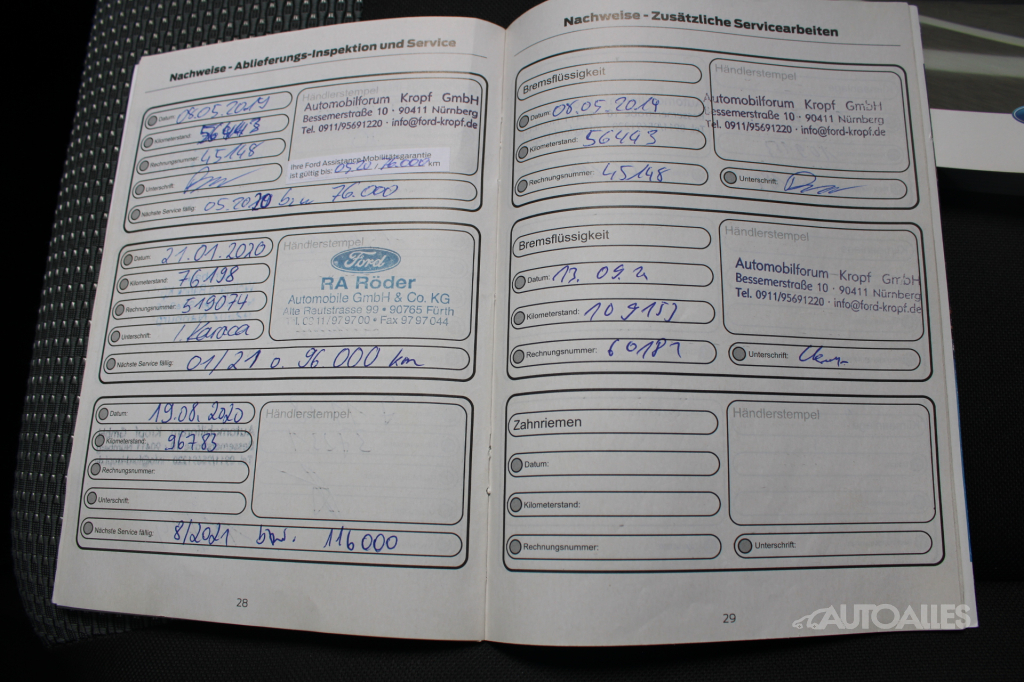 Nachweise - Ablieferungs-Inspektion und Service
Datum: 08.05.2019
Kilometerstand: 56443
Rechnungsnummer: 45148
Unterschrift:
Händlerstempel
Automobilforum Kropf GmbH
Bessemerstraße 10 · 90411 Nürnberg
Tel. 0911/95691220 · info@ford-kropf.de
Ihre Ford Assistance Mobilitätsgarantie
ist gültig bis: 05.20, 76.000 km
Nächste Service fällig: 05.2020 bzw 76.000
Datum: 21.01.2020
Kilometerstand: 76198
Rechnungsnummer: 519074
Unterschrift: Karaca
Händlerstempel
Ford
RA Röder
Automobile GmbH & Co. KG
Alte Reutstrasse 99 · 90765 Fürth
Tel. 0911/97 97 00 · Fax 97 97 044
Nächste Service fällig: 01/21 o. 96 000 km
Datum: 19.08.2020
Kilometerstand: 96783
Rechnungsnummer:
Unterschrift:
Händlerstempel
Nächste Service fällig: 8/2021 bzw. 116000
28
Nachweise - Zusätzliche Servicearbeiten
Bremsflüssigkeit
Datum: 08.05.2019
Kilometerstand: 56443
Rechnungsnummer: 45148
Händlerstempel
Automobilforum Kropf GmbH
Bessemerstraße 10 · 90411 Nürnberg
Tel. 0911/95691220 · info@ford-kropf.de
Unterschrift:
Bremsflüssigkeit
Datum: 13. 09 21
Kilometerstand: 109153
Rechnungsnummer: 60181
Händlerstempel
Automobilforum Kropf GmbH
Bessemerstraße 10 · 90411 Nürnberg
Tel. 0911/95691220 · info@ford-kropf.de
Unterschrift:
Zahnriemen
Datum:
Kilometerstand:
Rechnungsnummer:
Händlerstempel
Unterschrift:
29
AUTOALLES